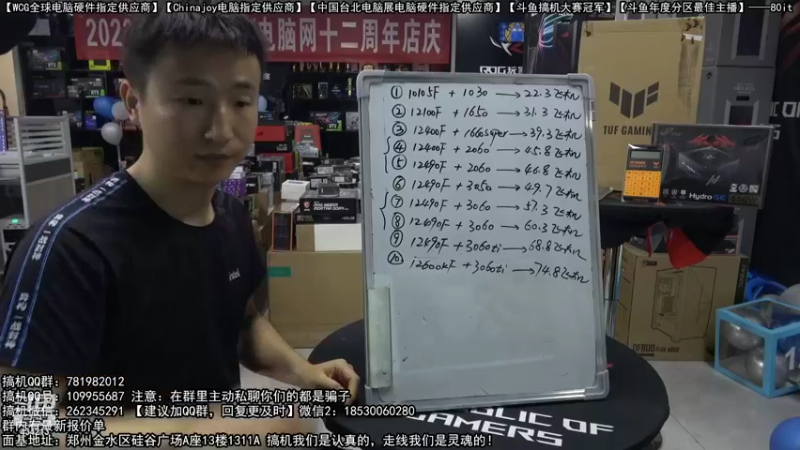 【WCG全球电脑硬件指定供应商】【Chinajoy电脑指定供应商】【中国台北电脑展电脑硬件指定供应商】【斗鱼搞机大赛冠军】【斗鱼年度分区最佳主播】——80it
202
电脑网十二周年店庆
TUF GAMING
Hydro GE
intel
① 10105F + 1030 → 22.3飞机
② 12100F + 1650 → 31.3飞机
③ 12400F + 1660super → 39.3飞机
④ 12400F + 2060 → 45.8飞机
⑤ 12490F + 2060 → 46.8飞机
⑥ 12490F + 3050 → 49.7飞机
⑦ 12490F + 3060 → 57.3飞机
⑧ 12490F + 3060 → 60.3飞机
⑨ 12490F + 3060ti → 68.8飞机
⑩ i2600kF + 3060ti → 74.8飞机
DF800
REPUBLIC OF
GAMERS
搞机QQ群：781982012
搞机QQ号：109955687 注意：在群里主动私聊你们的都是骗子
搞机微信：262345291 【建议加QQ群，回复更及时】微信2：18530060280
群内有最新报价单
面基地址：郑州金水区硅谷广场A座13楼1311A 搞机我们是认真的，走线我们是灵魂的！